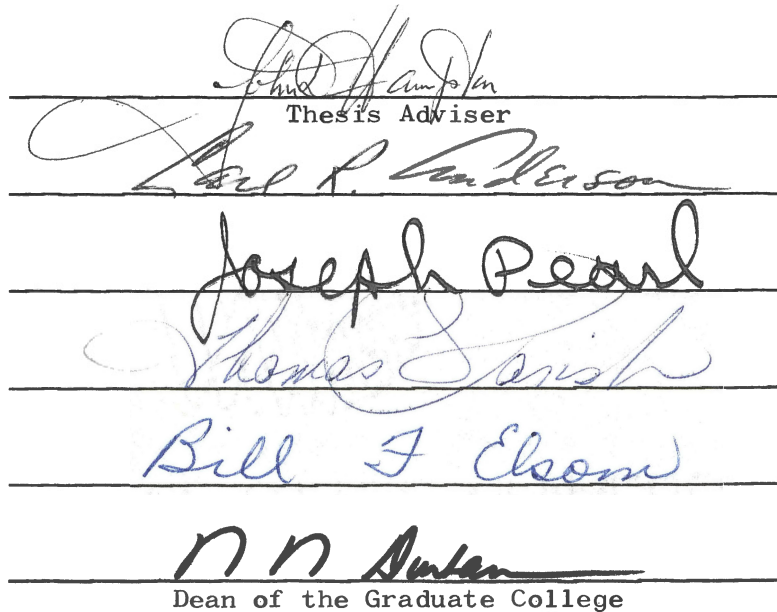 John D Hampton
Thesis Adviser
R. Anderson
Joseph Pearl
Thomas
Bill F Elsom
N N Durham
Dean of the Graduate College